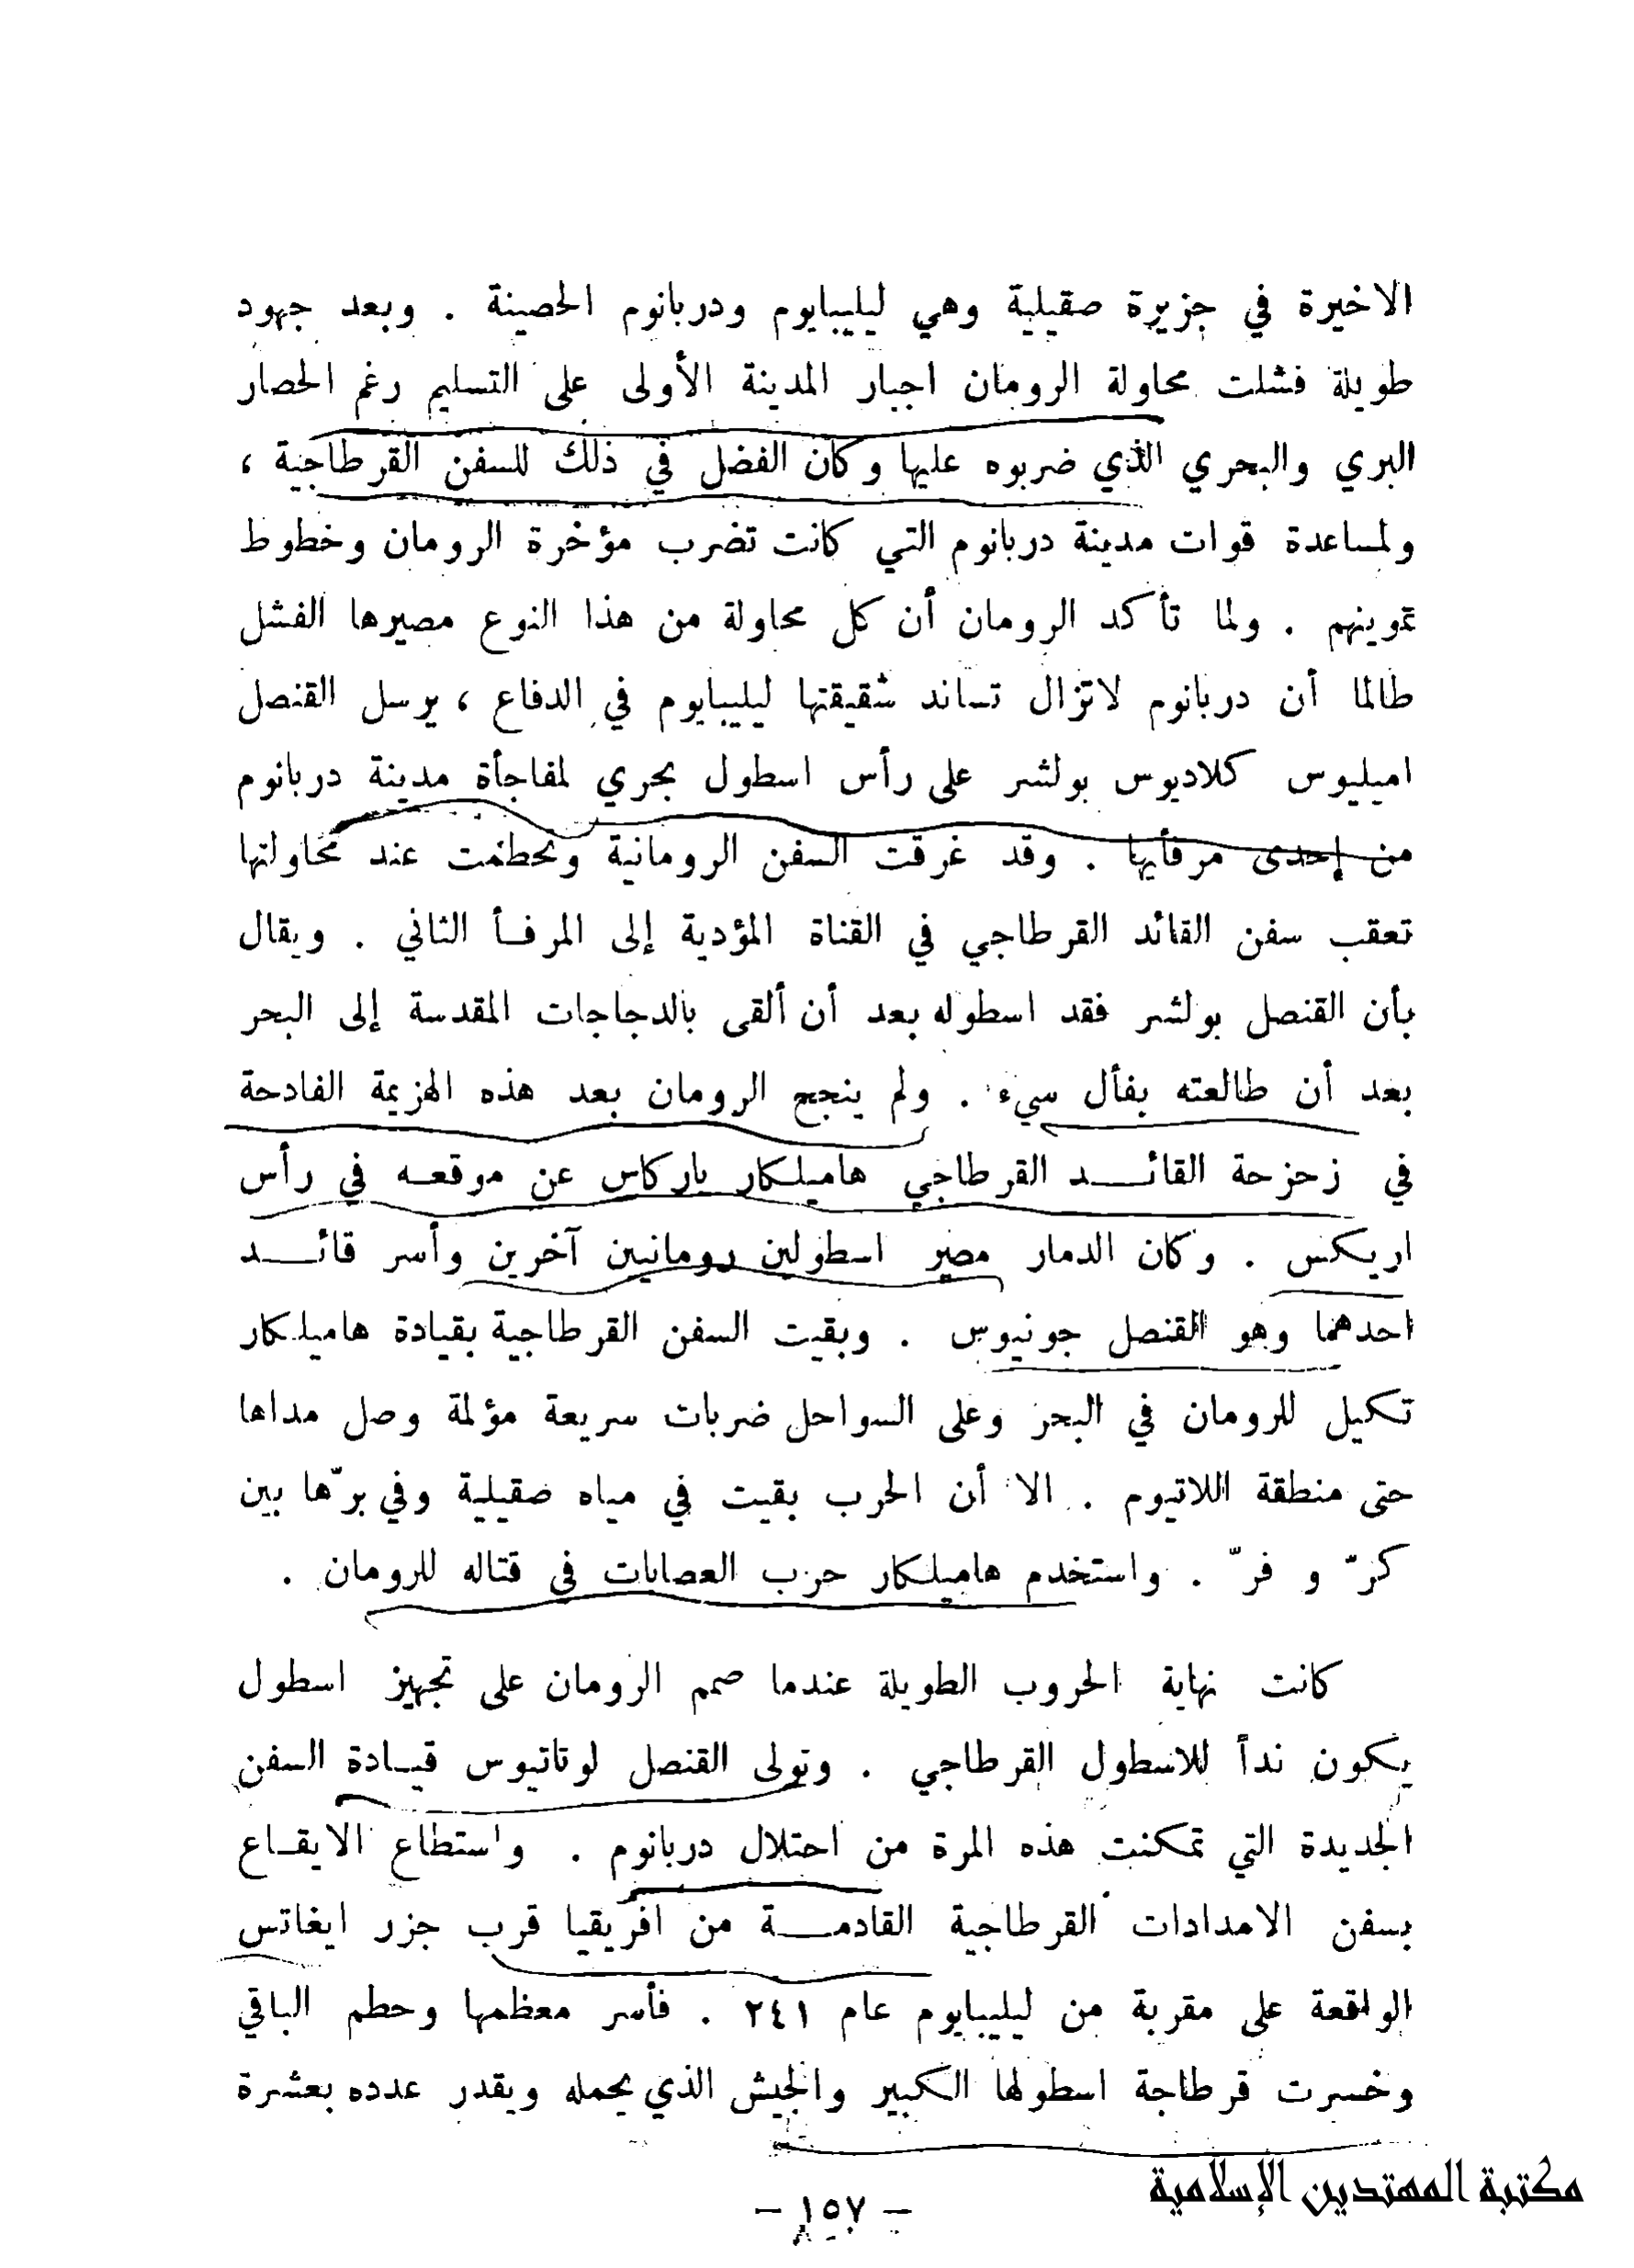 الاخيرة في جزيرة صقيلية وهي ليليبايوم ودربانوم الحصينة . وبعد جهود
طويلة فشلت محاولة الرومان اجبار المدينة الأولى على التسليم رغم الحصار
البري والبحري الذي ضربوه عليها وكان الفضل في ذلك للسفن القرطاجية ،
ولمساعدة قوات مدينة دربانوم التي كانت تضرب مؤخرة الرومان وخطوط
تموينهم . ولما تأكد الرومان أن كل محاولة من هذا النوع مصيرها الفشل
طالما أن دربانوم لاتزال تساند شقيقتها ليليبايوم في الدفاع ، يرسل القنصل
اميليوس كلاديوس بولشر على رأس اسطول بحري لمفاجأة مدينة دربانوم
من إحدى مرفأيها . وقد غرقت السفن الرومانية وتحطمت عند محاولتها
تعقب سفن القائد القرطاجي في القناة المؤدية إلى المرفأ الثاني . ويقال
بأن القنصل بولشر فقد اسطوله بعد أن ألقى بالدجاجات المقدسة إلى البحر
بعد أن طالعته بفأل سيء . ولم ينجح الرومان بعد هذه الهزيمة الفادحة
في زحزحة القائد القرطاجي هاميلكار باركاس عن موقعه في رأس
اريكس . وكان الدمار مصير اسطولين رومانيين آخرين وأسر قائد
احدهما وهو القنصل جونيوس . وبقيت السفن القرطاجية بقيادة هاميلكار
تكيل للرومان في البحر وعلى السواحل ضربات سريعة مؤلمة وصل مداها
حتى منطقة اللاتيوم . الا أن الحرب بقيت في مياه صقيلية وفي برّها بين
كرّ و فرّ . واستخدم هاميلكار حرب العصابات في قتاله للرومان .
كانت نهاية الحروب الطويلة عندما صمم الرومان على تجهيز اسطول
يكون نداً للاسطول القرطاجي . وتولى القنصل لوتاتيوس قيادة السفن
الجديدة التي تمكنت هذه المرة من احتلال دربانوم . واستطاع الايقاع
بسفن الامدادات القرطاجية القادمة من افريقيا قرب جزر ايغاتس
الواقعة على مقربة من ليليبايوم عام ٢٤١ . فأسر معظمها وحطم الباقي
وخسرت قرطاجة اسطولها الكبير والجيش الذي يحمله ويقدر عدده بعشرة
مكتبة المهتدين الإسلامية
- ١٥٧ -